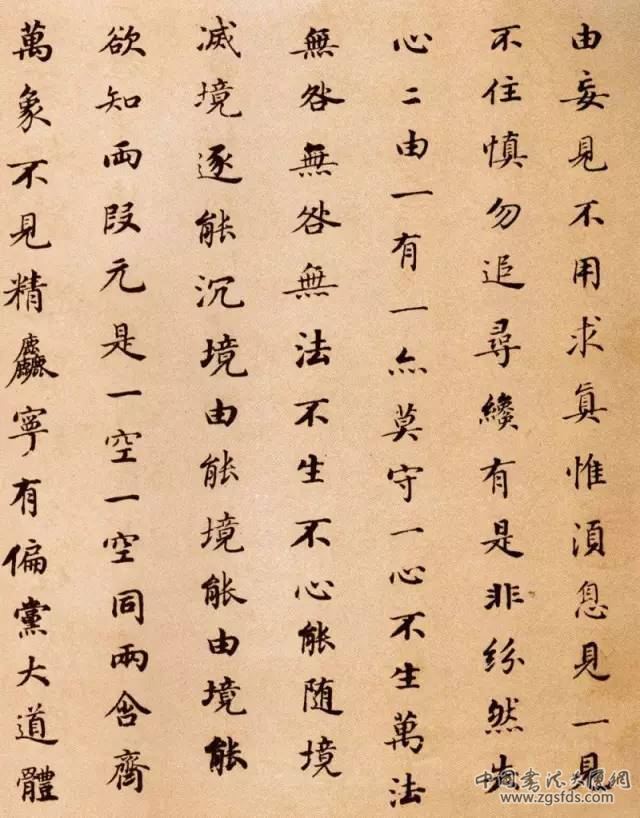 由妄見不用求眞惟須息見一見
不住慎勿追尋纔有是非紛然失
心二由一有一亦莫守一心不生萬法
無咎無咎無法不生不心能随境
滅境逐能沉境由能境能由境能
欲知兩段元是一空一空同兩含齊
萬象不見精麤寧有偏黨大道體
中国书法大厦网
www.zgsfds.com